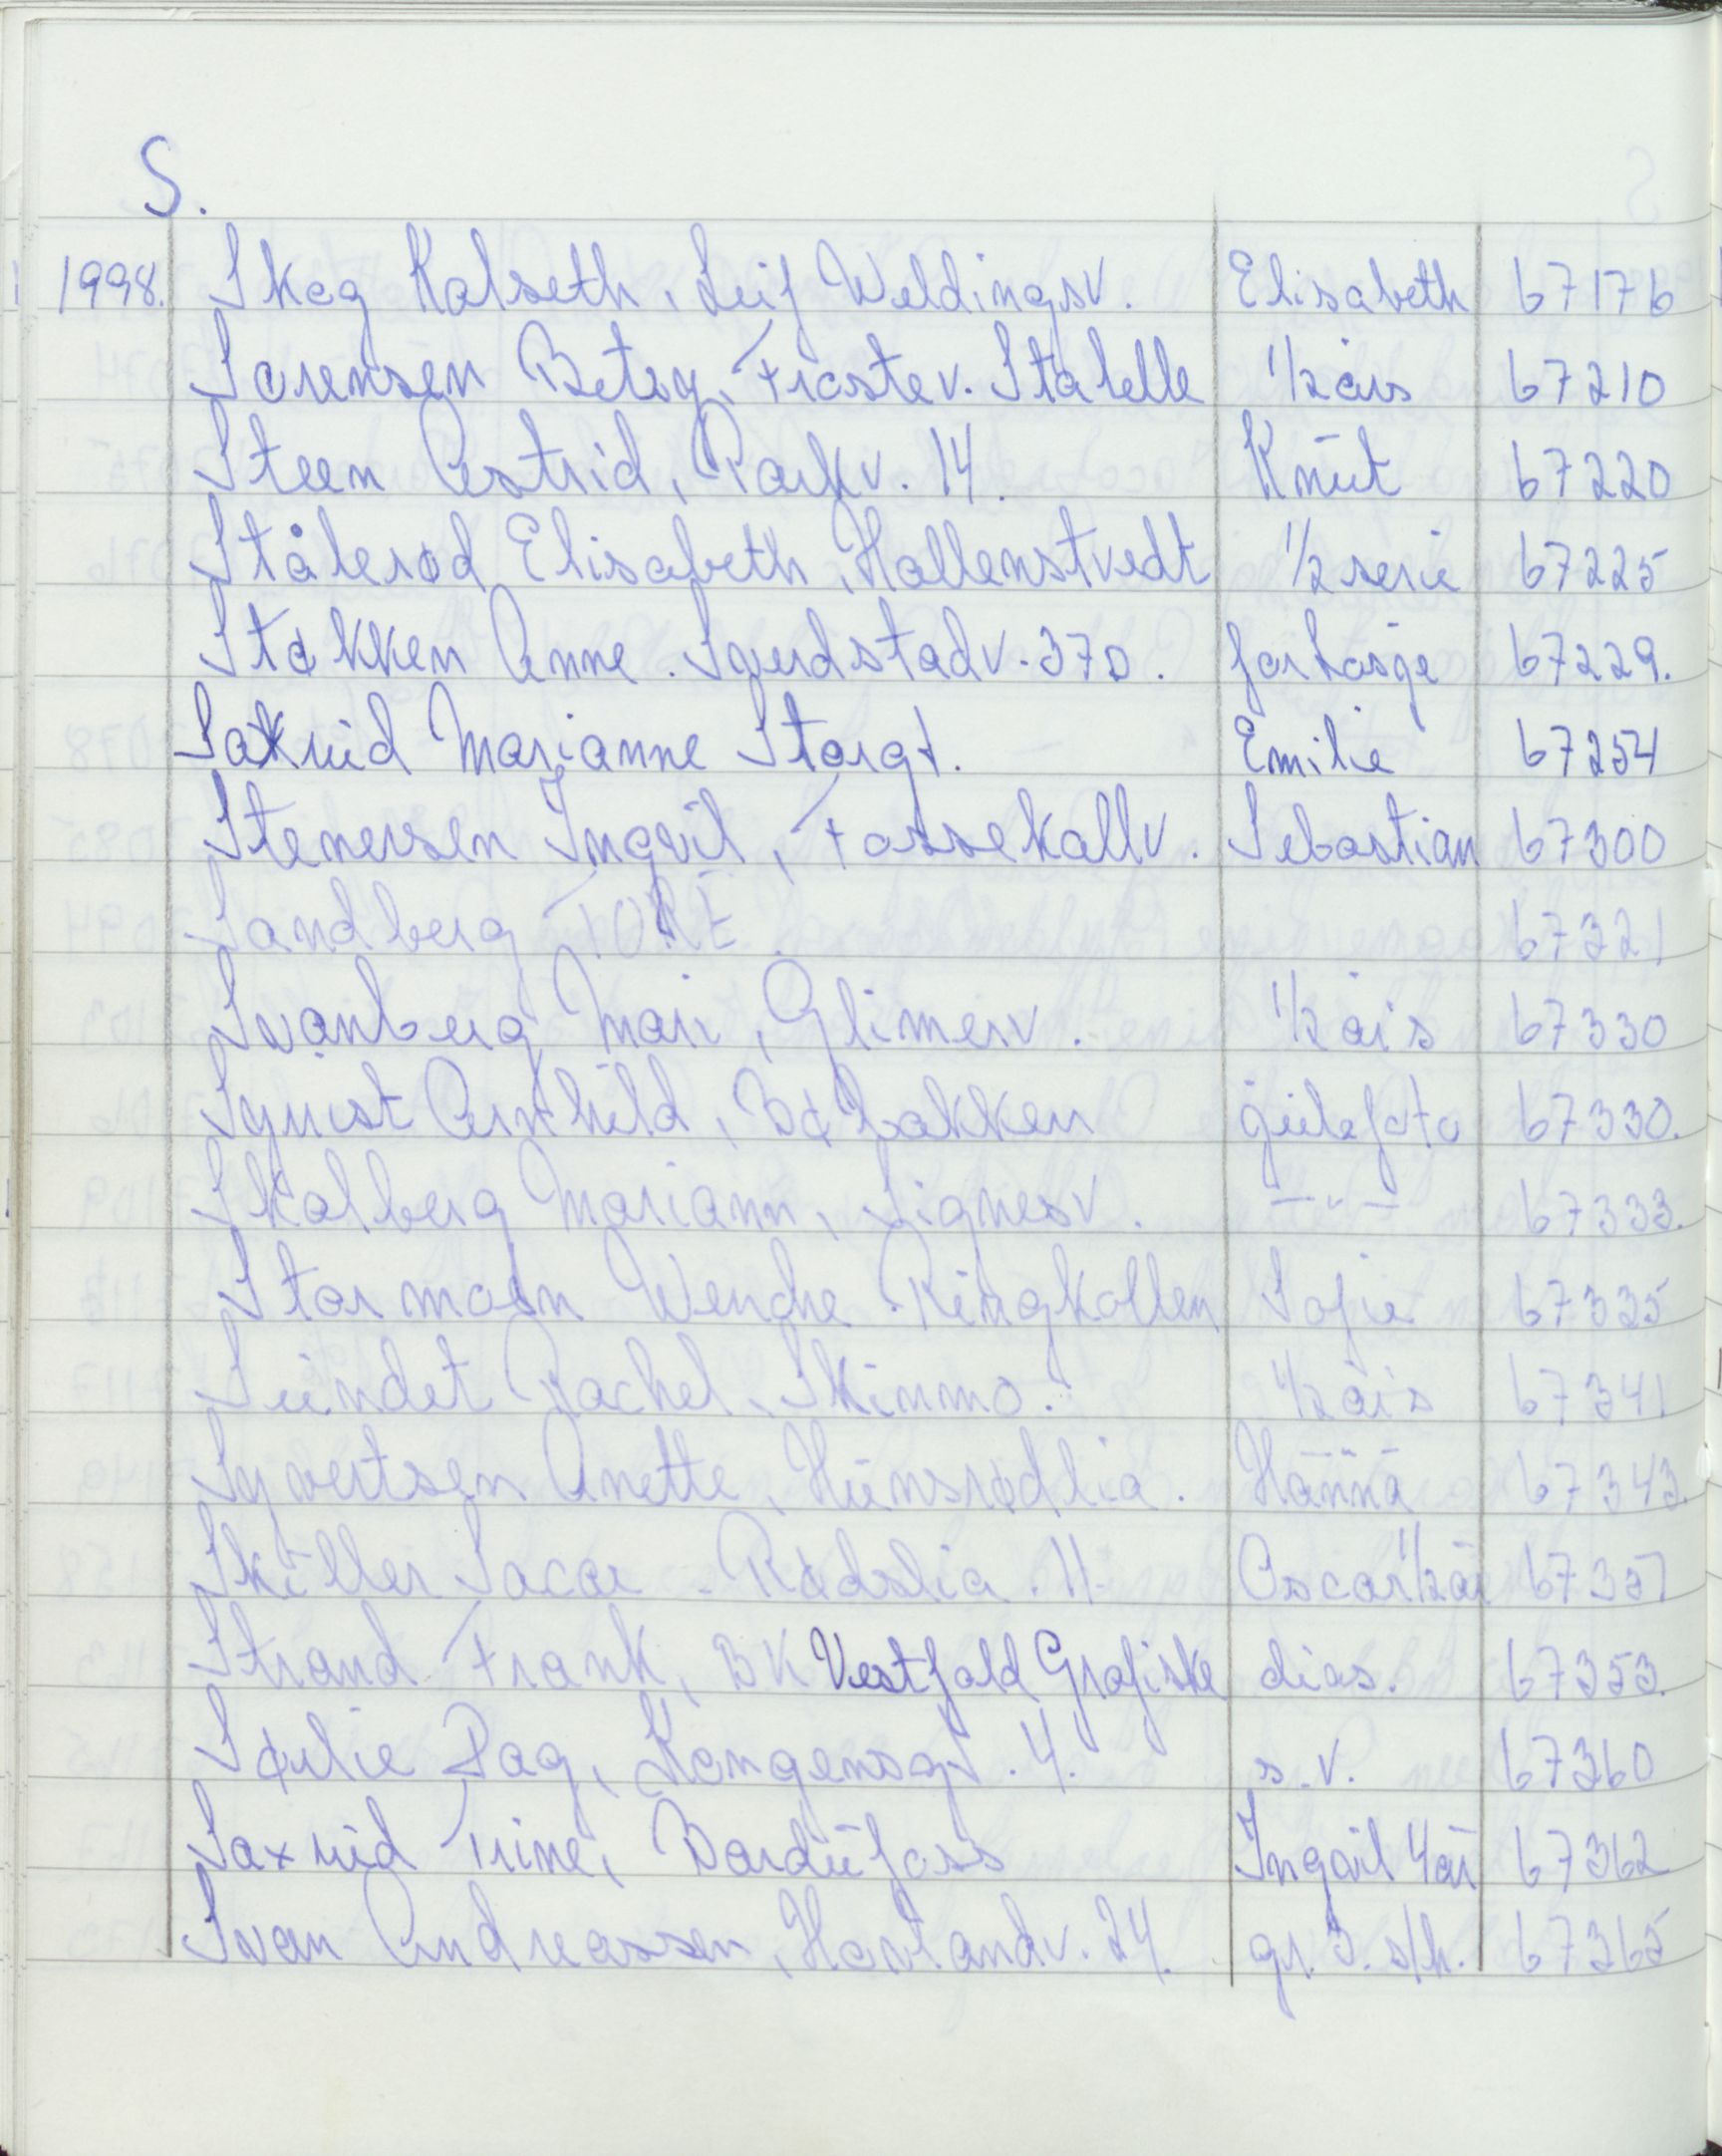 S.
1998. Skog Kalseth, Leif Weldingsv. Elisabeth 67176
Sørensen Betsy, Frostev. Ståbelle 1/2 års 67210
Steen Astrid, Parkv. 14. Knut 67220
Stålerød Elisabeth, Hallenstvedt 1/2 serie 67225
Støkken Anne. Sverdstadv. 37D. 67229.
Saxrud Marianne Storgt. Emilie 67254
Stenersen Ingvil, Fossekallv. Sebastian 67300
Sandberg TORE 67321
Svanberg Mari, Glimerv. 1/2 års 67330
Syrrist Arnhild, Bøbakken julefoto 67330.
Skalberg Mariann, Signesv. — " — 67333.
Stormoen Wenche. Ringkollen Sofie 67335
Sundet Rachel, Skinmo. 1/2 års 67341
Syvertsen Anette, Hunsrødlia. Hanna 67343.
Skiller - Rødslia. 11. Oscar 1/2 år 67351
Strand Frank, BK Vestfold Grafiske dias. 67353.
Sørlie Dag, Kongensgt. 4. s.v. 67360
Saxrud Trine, Bardufoss Ingvil 4 år 67362
Svan Andreassen, Havlandv. 24. gr. 3. s/h. 67365